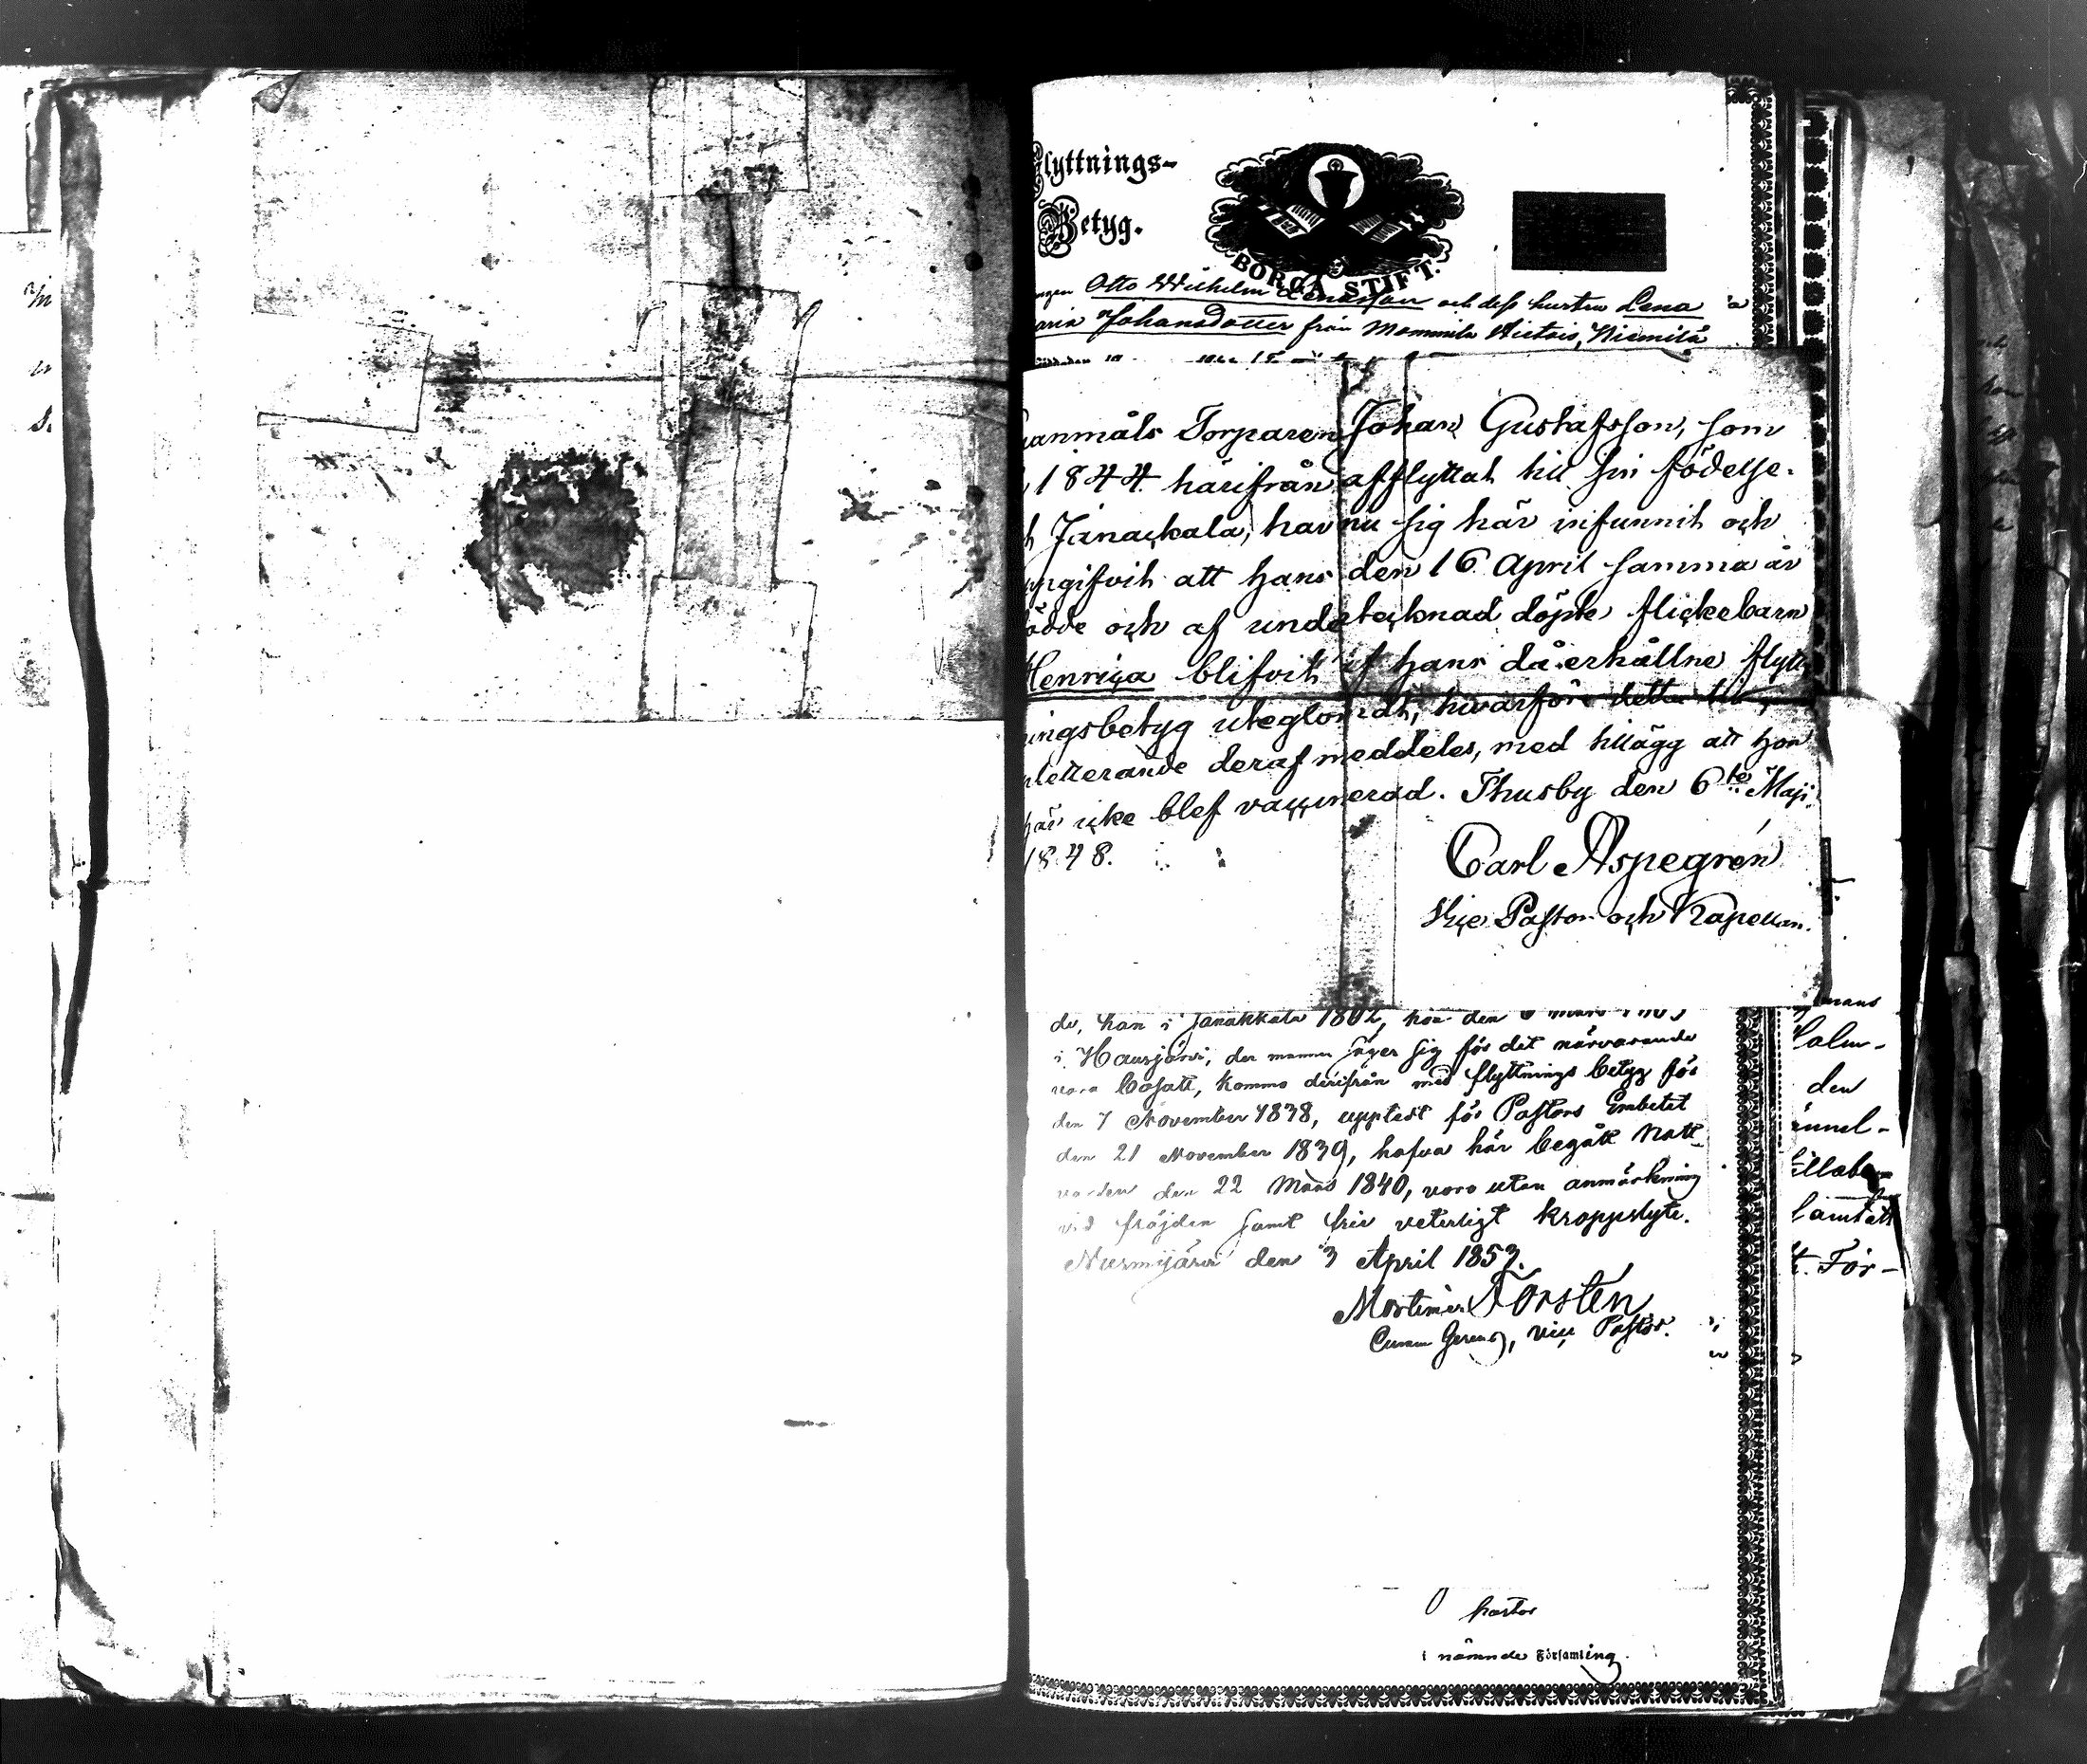 Flyttnings-
Betyg.
BORGÅ STIFT.
Otto Wilhelm och dess hustru Lena
Johansdotter från Mommila Hietois, Niemilä
Torparen Johan Gustafsson, som
1844 härifrån afflyttat till sin födelse-
Janackala, har nu sig här infunnit och
att hans den 16 April samma år
födde och af undertecknad döpte flickebarn
Henrica blifvit i hans då erhållne flytt-
ningsbetyg uteglömdt, hvarföre detta
deraf meddeles, med tillägg att hon
här icke blef vaccinerad. Thusby den 6te Maji
1848.
Carl Aspegrén
Vice Pastor och Kapellan.
de, han i Janakkala 1802, hon den
i Hausjärvi, der mannen säger sig för det närvarande
vara bosatt, kommo derifrån med flyttnings betyg för
den 7 November 1838, upptedt för Pastors Embetet
den 21 November 1839, hafva här begått Natt-
varden den 22 Mars 1840, voro utan anmärkning
vid fräjden samt frie veterligt kroppslyte.
Nurmijärvi den 3 April 1853.
Mortimer Forstén
vice Pastor.
den
t. För-
Pastor
i nämnde Församling.